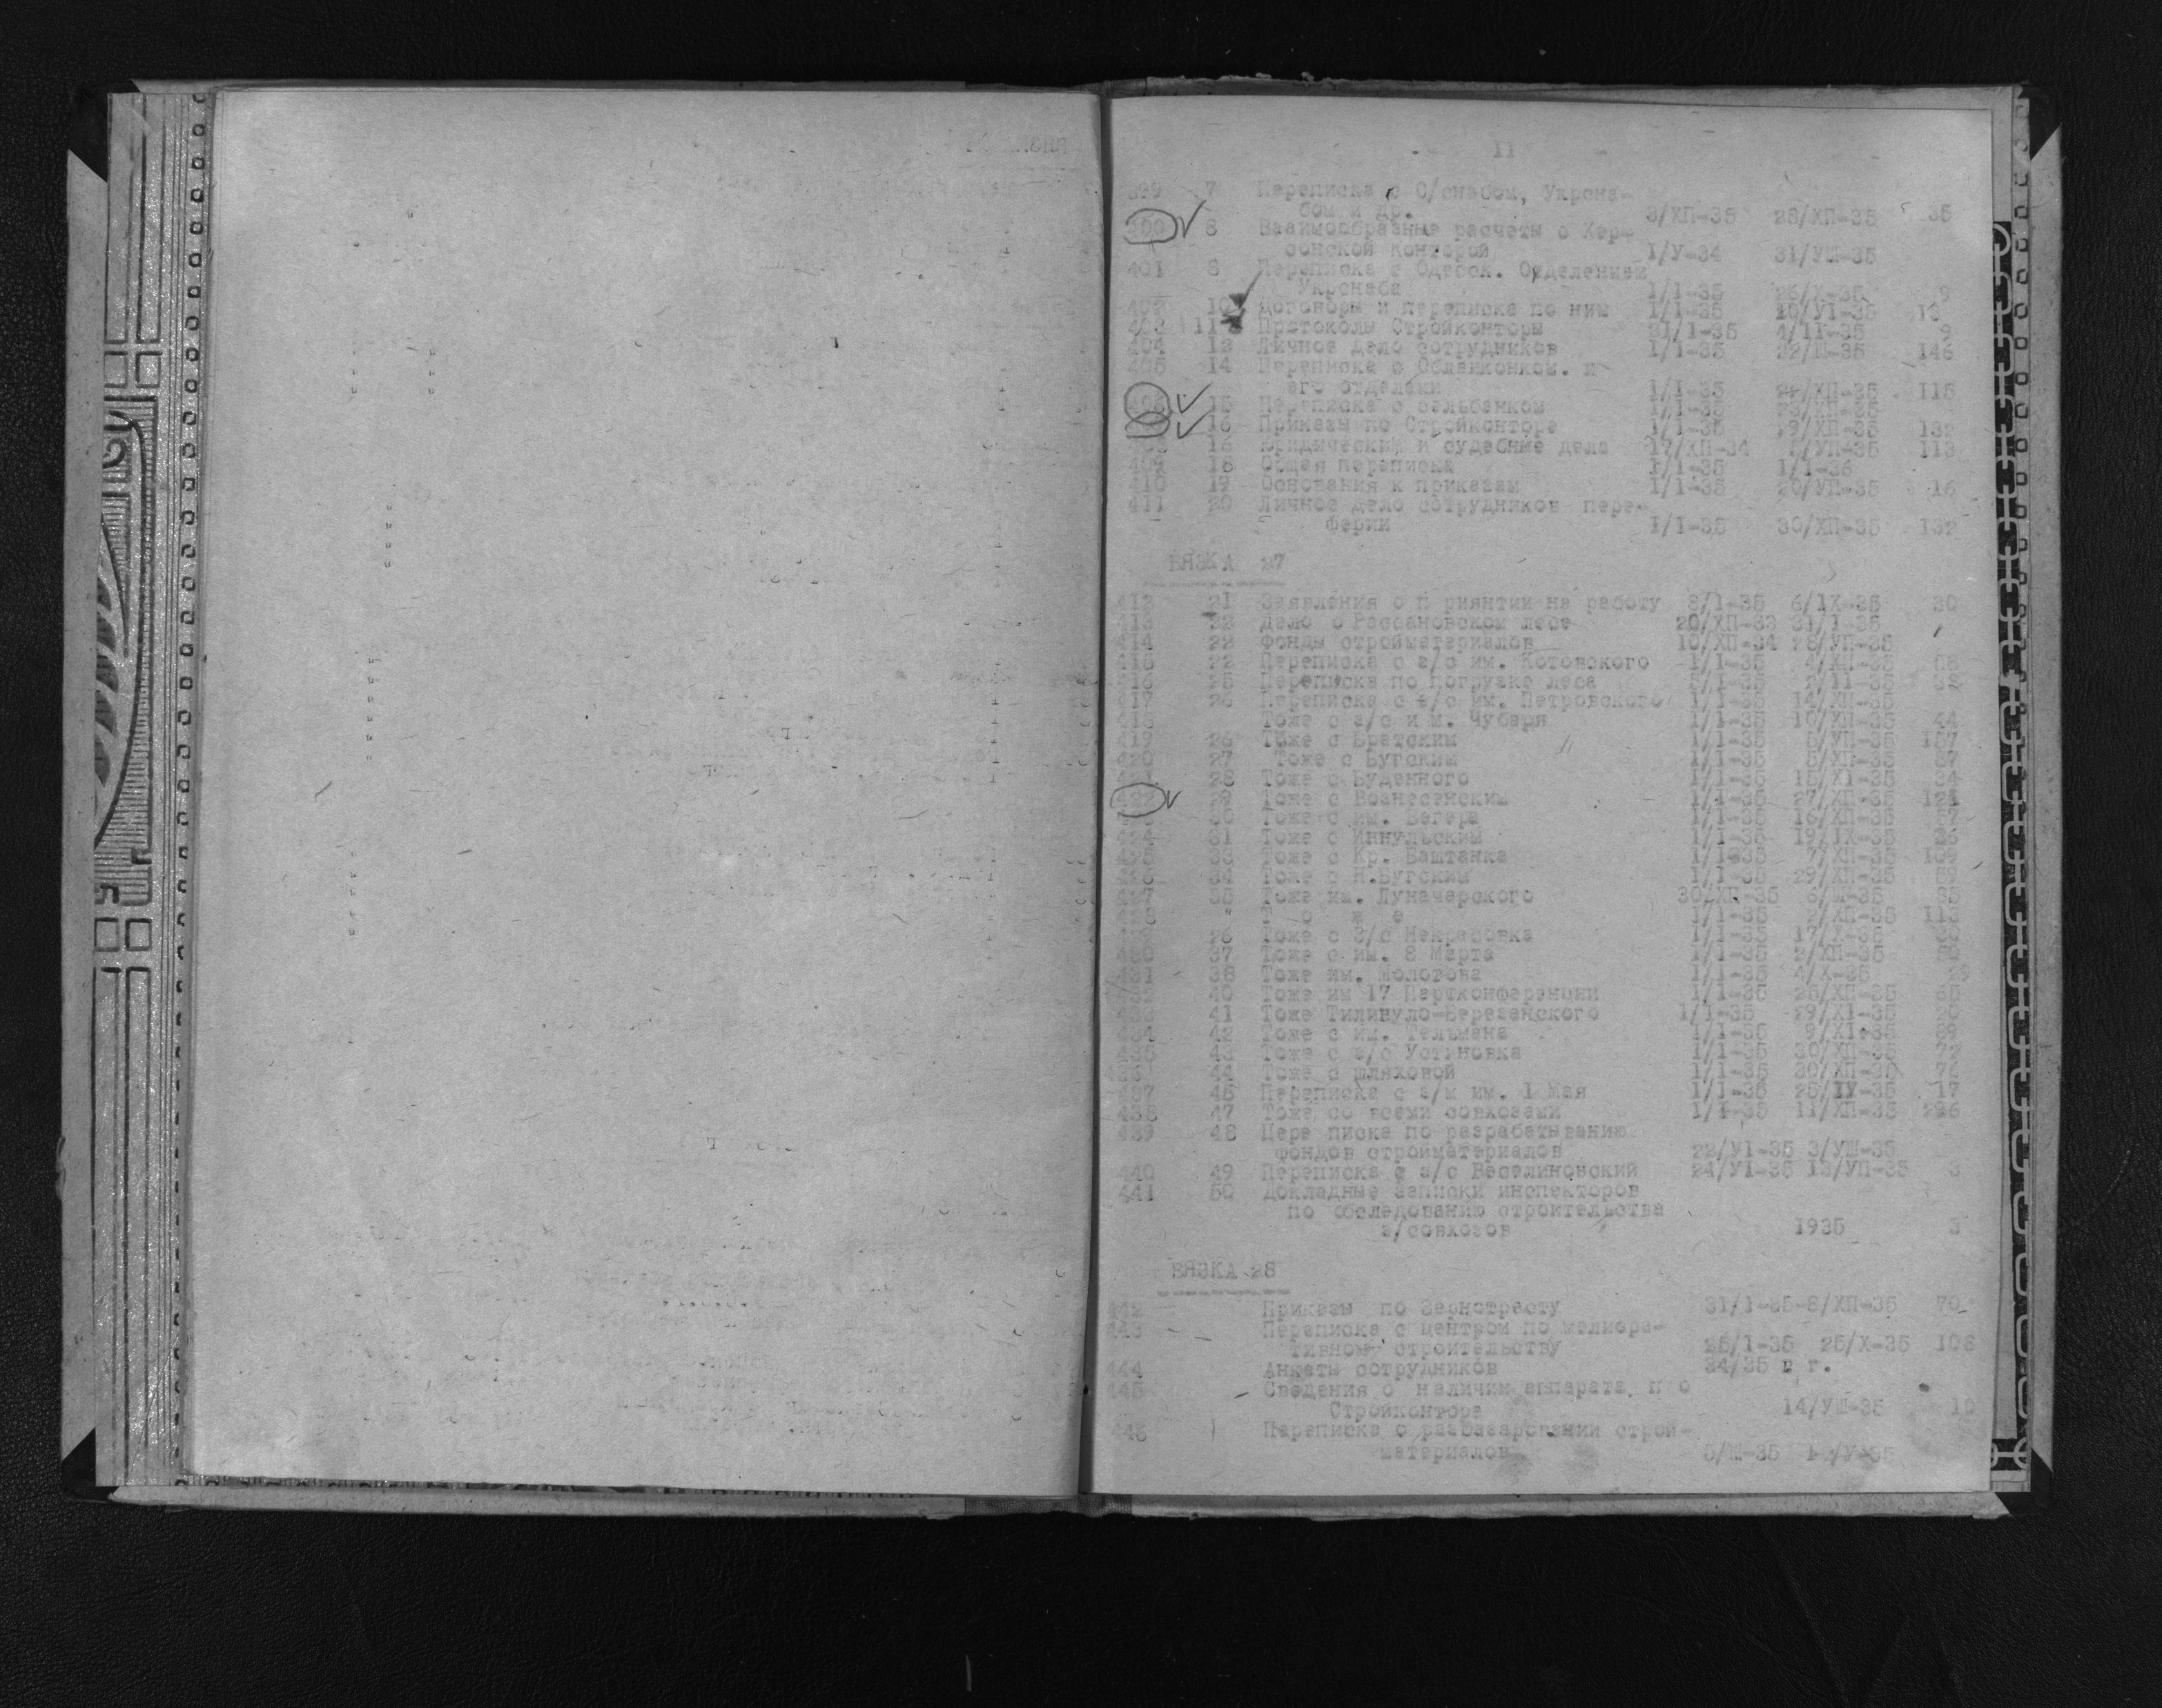 11
399 7 Переписка с С/снабом, Укрсна-
бом и др. 3/ХП-35 28/ХП-35 35
400 8 Взаимообразные расчеты с Хер-
сонской конторой 1/У-34 31/УШ-35
401 8 Переписка с Одесск. Отделением
Укрснаба 1/1-35 26/Х-35 9
402 10 Договоры и переписка по ним 1/1-35 16/У1-35
403 11 Протоколы Стройконторы 21/1-35 4/11-35 9
404 12 Личное дело сотрудников 1/1-35 22/Ш-35 146
405 14 Переписка с Облвиконком. и
его отделами 1/1-35 24/ХП-35 115
406 15 Переписка с сельбанком 1/1-35
16 Приказы по Стройконторе 1/1-35 29/ХП-35 132
16 Юридическии и судебные дела 17/ХП-34 /УП-35 113
409 18 Общая переписка 1/1-35 1/1-36
410 19 Основания к приказам 1/1-35 20/УП-35 16
411 20 Личное дело сотрудников пере-
ферии 1/1-35 30/ХП-35 132
ВЯЗКА 27
412 21 Заявления о п риянтии на работу 8/1-35 6/1Х-35 30
413 22 Дело о Рассановском лесе 20/ХП-33 31/1-35
414 22 Фонды стройматериалов 10/ХП-34 28/УП-35
415 22 Переписка с з/с им. Котовского 1/1-35 4/ХП-35 68
416 25 Переписка по погрузке леса 2/1-35 2/11-35 32
417 26 Переписка с з/с им. Петровского 1/1-35 14/ХП-35
418 Тоже с з/с и м. Чубаря 1/1-35 10/ХП-35 44
419 26 Тоже с Братским 1/1-35 5/УП-35 157
420 27 Тоже с Бугским 1/1-35 5/ХП-35 87
421 28 Тоже с Буденного 1/1-35 15/Х1-35 34
422 29 Тоже с Вознесенским 1/1-35 27/ХП-35 121
423 30 Тоже с им. Вегера 1/1-35 16/ХП-35 57
424 31 Тоже с Иннульским 1/1-35 19/1Х-35 26
425 33 Тоже с Кр. Баштанка 1/1-35 7/ХП-35 109
426 34 Тоже с Н.Бугским 1/1-35 29/ХП-35 59
427 35 Тоже им. Луначарского 30/ХП-35 6/Ш-35 85
428 Т о ж е 1/1-35 2/ХП-35 113
26 Тоже с З/с Некрасовка 1/1-35 17/Х-35
430 37 Тоже с им. 8 Марта 1/1-35 2/ХП-35
431 38 Тоже им. Молотова 1/1-35 4/Х-35 29
432 40 Тоже им 17 Партконференции 1/1-35 25/ХП-35 65
433 41 Тоже Тилигуло-Березанского 1/1-35 29/Х1-35 20
434 42 Тоже с им. Тельмана 1/1-35 9/Х1-35 89
435 43 Тоже с з/с Устиновка 1/1-35 30/ХП-35 72
436 44 Тоже с Шляховой 1/1-35 30/ХП-35 76
437 45 Переписка с з/м им. 1 Мая 1/1-35 25/1У-35 17
438 47 Тоже со всеми совхозами 1/1-35 11/ХП-35 226
439 48 Пере писка по разрабатыванию
фондов стройматериалов 22/У1-35 3/УШ-35
440 49 Переписка с з/с Веселиновский 24/У1-35 13/УП-35 3
441 50 Докладные записки инспекторов
по обследованию строительства
з/совхозов 1935 3
ВЯЗКА 28
442 Приказы по Зернотресту 31/1-35-8/ХП-35 70
443 Переписка с центром по мелиора-
тивному строительству 25/1-35 25/Х-35 108
444 Анкеты сотрудников 34/35 г г.
445 Сведения о наличии аппарата п о
Стройконторе 14/УШ-35 10
446 Переписка о разбазаровании строй-
материалов 5/Ш-35